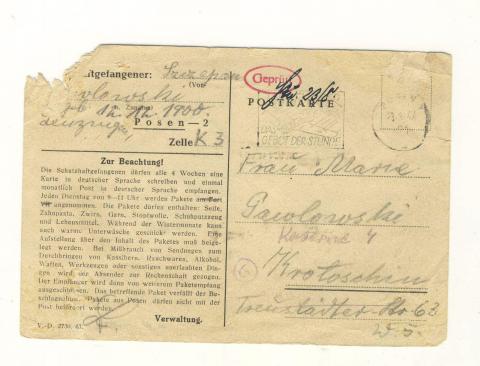 ftgefangener: Szczepan
(Vor-
Pawlowski
Zuname)
geb 12.12.1900.
Posen—2
Zelle K 3
Zur Beachtung!
Die Schutzhaftgefangenen dürfen alle 4 Wochen eine
Karte in deutscher Sprache schreiben und einmal
monatlich Post in deutscher Sprache empfangen.
Jeden Dienstag von 9—11 Uhr werden Pakete am Fort
VII angenommen. Die Pakete dürfen enthalten: Seife,
Zahnpasta, Zwirn, Garn, Stopfwolle, Schuhputzzeug
und Lebensmittel. Während der Wintermonate kann
auch warme Unterwäsche geschickt werden. Eine
Aufstellung über den Inhalt des Paketes muß beige-
legt werden. Bei Mißbrauch von Sendungen zum
Durchbringen von Kassibern, Rauchwaren, Alkohol,
Waffen, Werkzeugen oder sonstigen unerlaubten Din-
gen wird der Absender zur Rechenschaft gezogen. Der
Empfänger wird dann von weiterem Paketempfang
ausgeschlossen. Das betreffende Paket verfällt der Be-
schlagnahme. Pakete aus Posen dürfen nicht mit der
Post befördert werden.
Verwaltung.
V.-D. 2730. 63.
Geprüft
POSTKARTE
GEBOT DER STUNDE
Frau Marie
Pawlowski
Krotoschin
Str 63